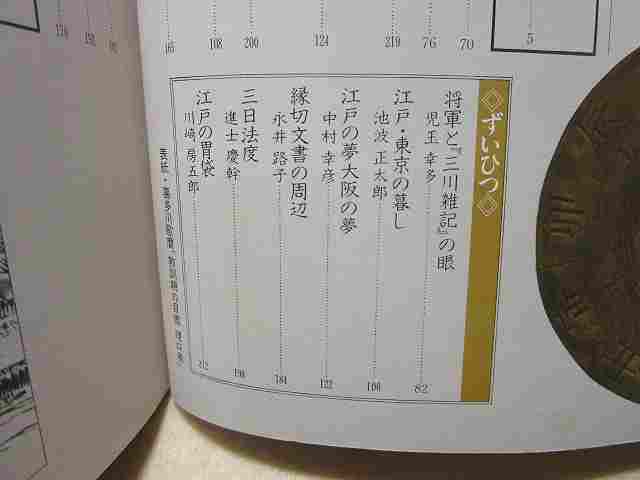 5
70
76
219
124
200
108
165
◇ずいひつ◇
将軍と『三川雑記』の眼
児玉幸多 82
江戸・東京の暮し
池波正太郎 100
江戸の夢大阪の夢
中村幸彦 122
縁切文書の周辺
永井路子 184
三日法度
進士慶幹 198
江戸の胃袋
川崎房五郎 212
表紙・喜多川歌麿「教訓親の目鑑 理口者」